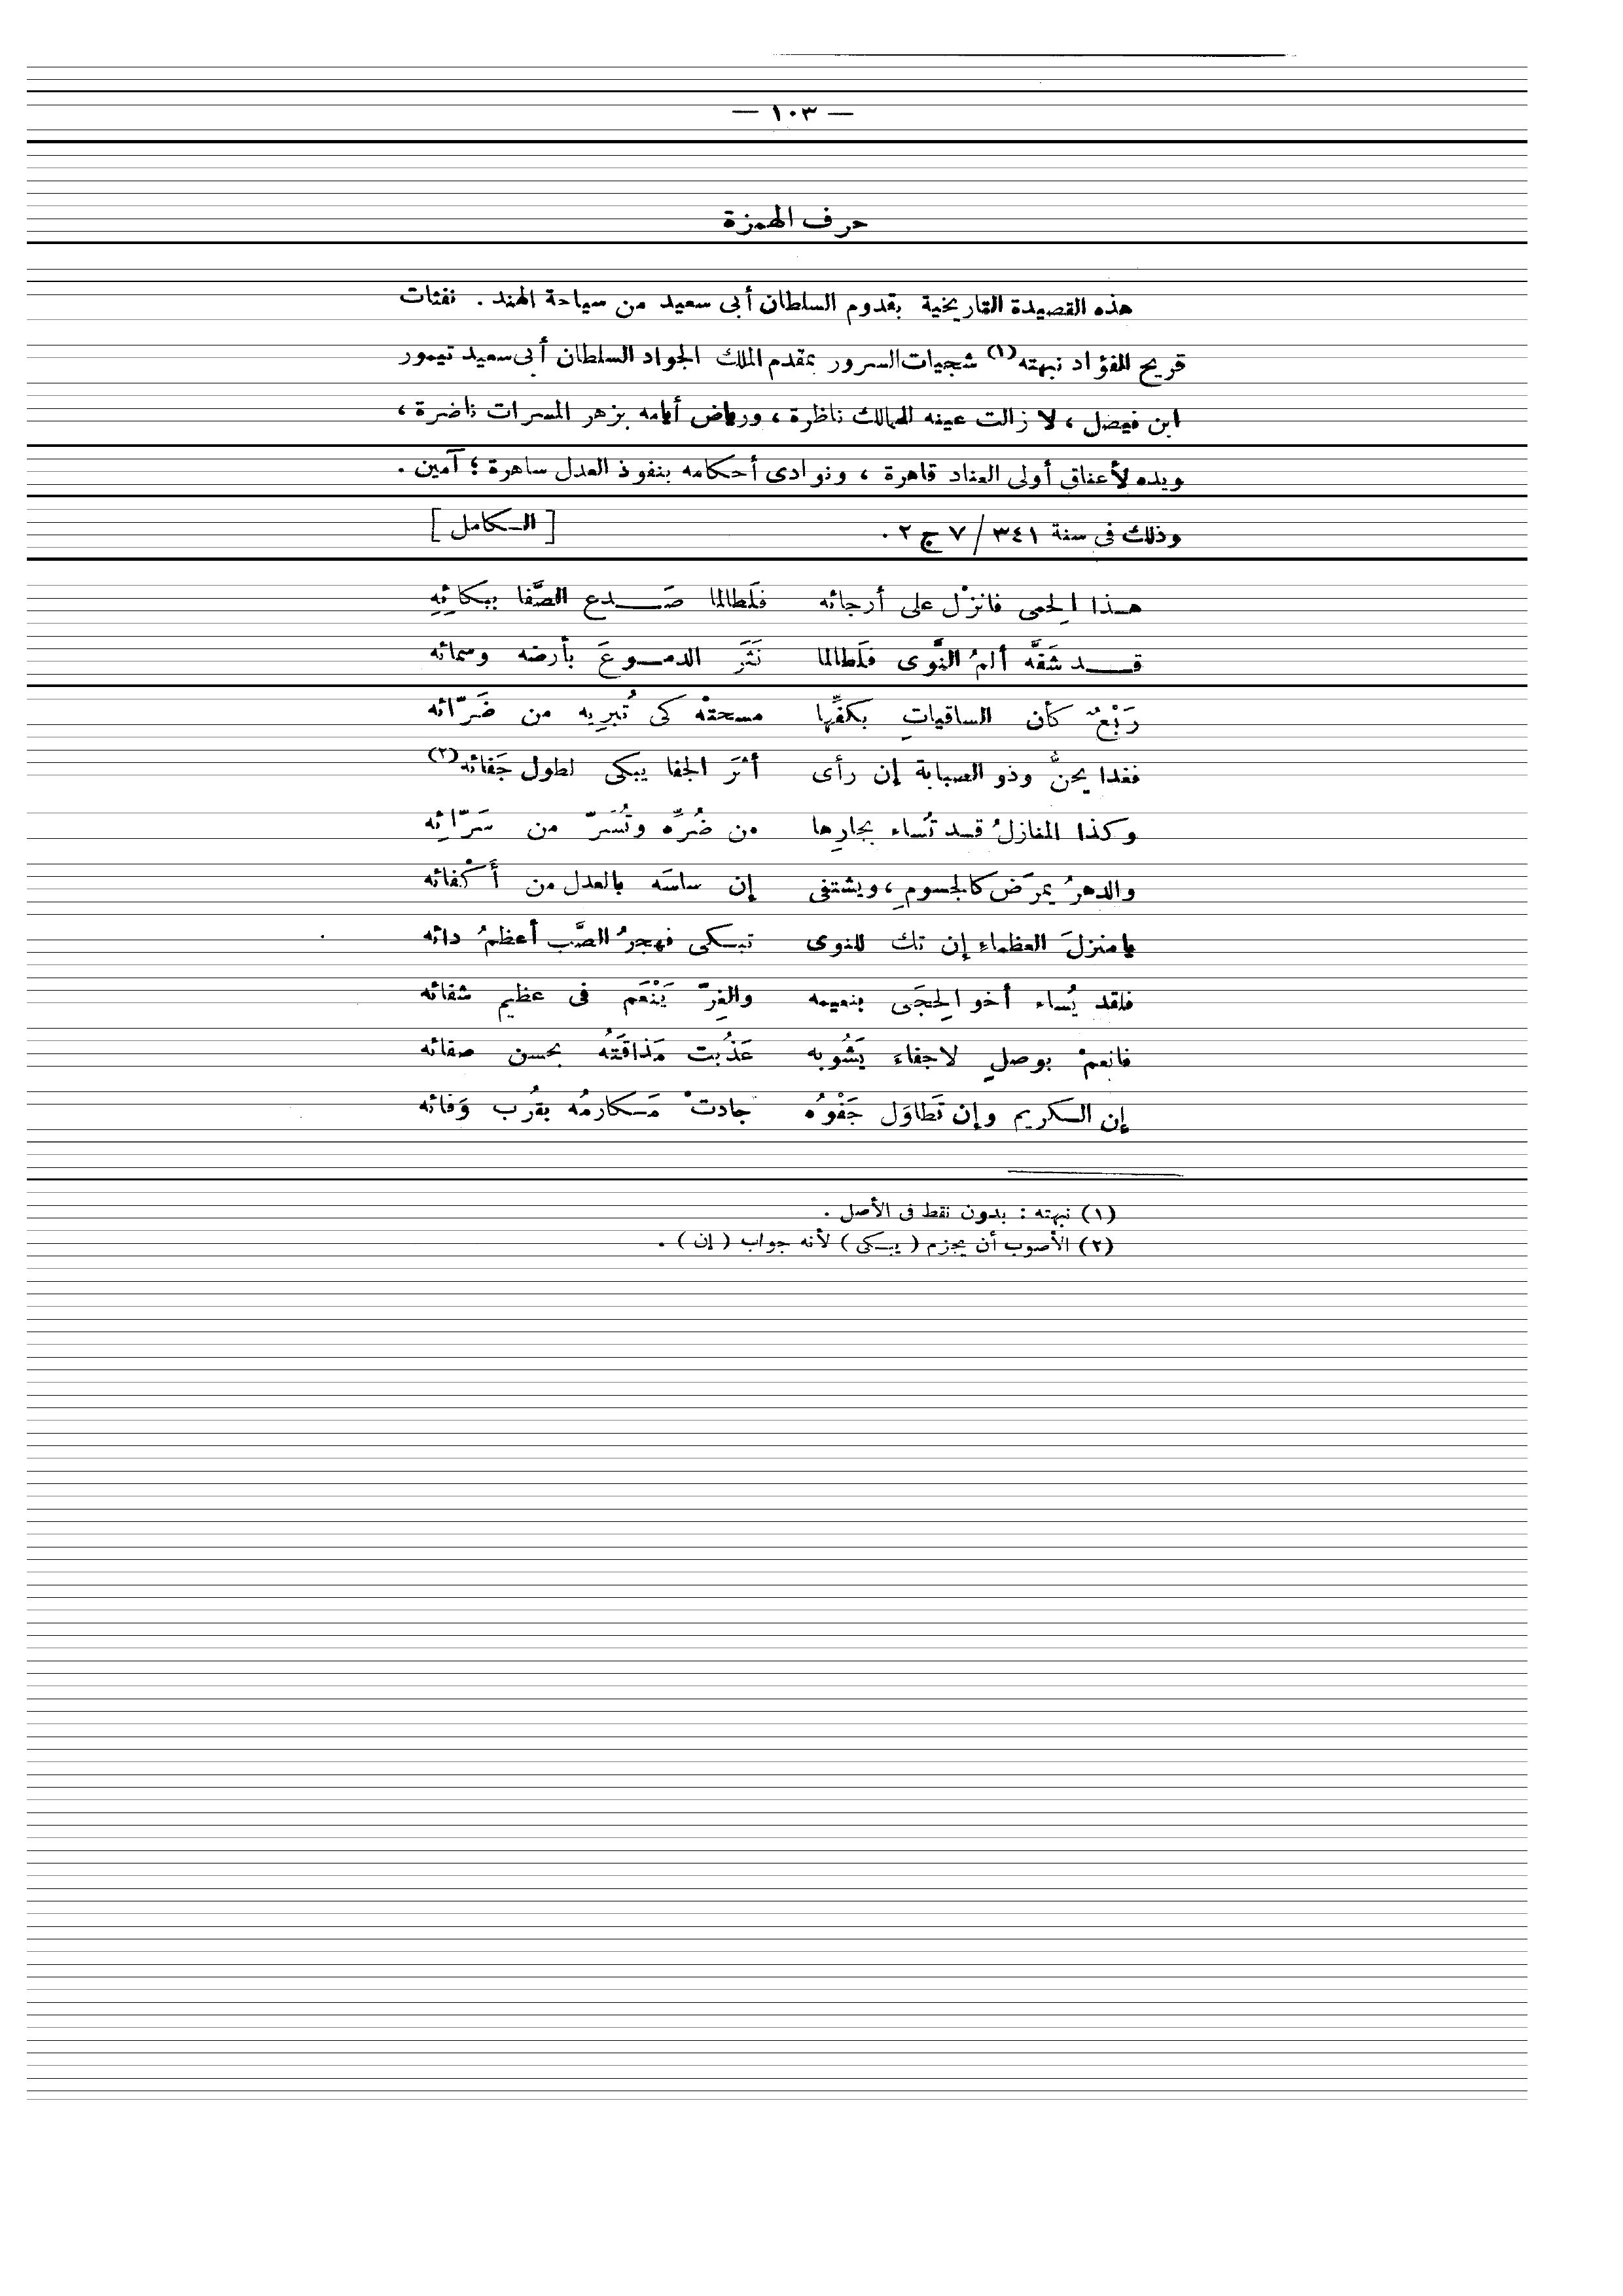 — ١٠٣ —
حرف الهمزة
هذه القصيدة التاريخية بقدوم السلطان أبى سعيد من سياحة الهند . نفثات
قريح الفؤاد نبهته(١) شجيات السرور بمقدم الملك الجواد السلطان أبى سعيد تيمور
ابن فيصل ، لا زالت عينه للممالك ناظرة ، ورياض أيامه بزهر المسرات ناضرة ،
ويده لأعناق أولى العناد قاهرة ، ونوادى أحكامه بنفوذ العدل ساهرة ؛ آمين .
وذلك فى سنة ٣٤١ / ٧ ج ٢ . [ الـكامل ]
هـذا الِحمى فانزلْ على أرجائه فلَطالما صَـدع الصَّفا ببكائِهِ
قـد شَفَّه ألمُ النَّوى فلَطالما نَثَر الدمـوعَ بأرضه وسمائه
رَبْعٌ كأن الساقياتِ بكفِّها مسحتْه كى تُبرِيه من ضَرّائه
فغدا يحنُّ وذو الصبابة إن رأى أثرَ الجفا يبكى لطول جَفائه(٢)
وكذا المنازلُ قـد تُساء بجارِها من ضُرِّه وتُسَرّ من سَرّائِه
والدهرُ يمرَض كالجسومِ ، ويشتفى إن ساسَه بالعدل من أَكْفائه
يا منزلَ العظماءِ إن تك للنوى تبـكى فهجرُ الصَّب أعظمُ دائه
فلقد يُساء أخو الِحجَى بنعيمه والغِرّ يَنْعَم فى عظيم شقائه
فانعمْ بوصلٍ لا جفاءَ يَشُوبه عَذُبت مَذاقَتُه بحسن صفائه
إن الـكريم وإن تَطاوَل جَفْوُه جادتْ مَـكارمُه بقُرب وَفائه
(١) نبهته : بدون نقط فى الأصل .
(٢) الأصوب أن يجزم ( يبـكى ) لأنه جواب ( إن ) .